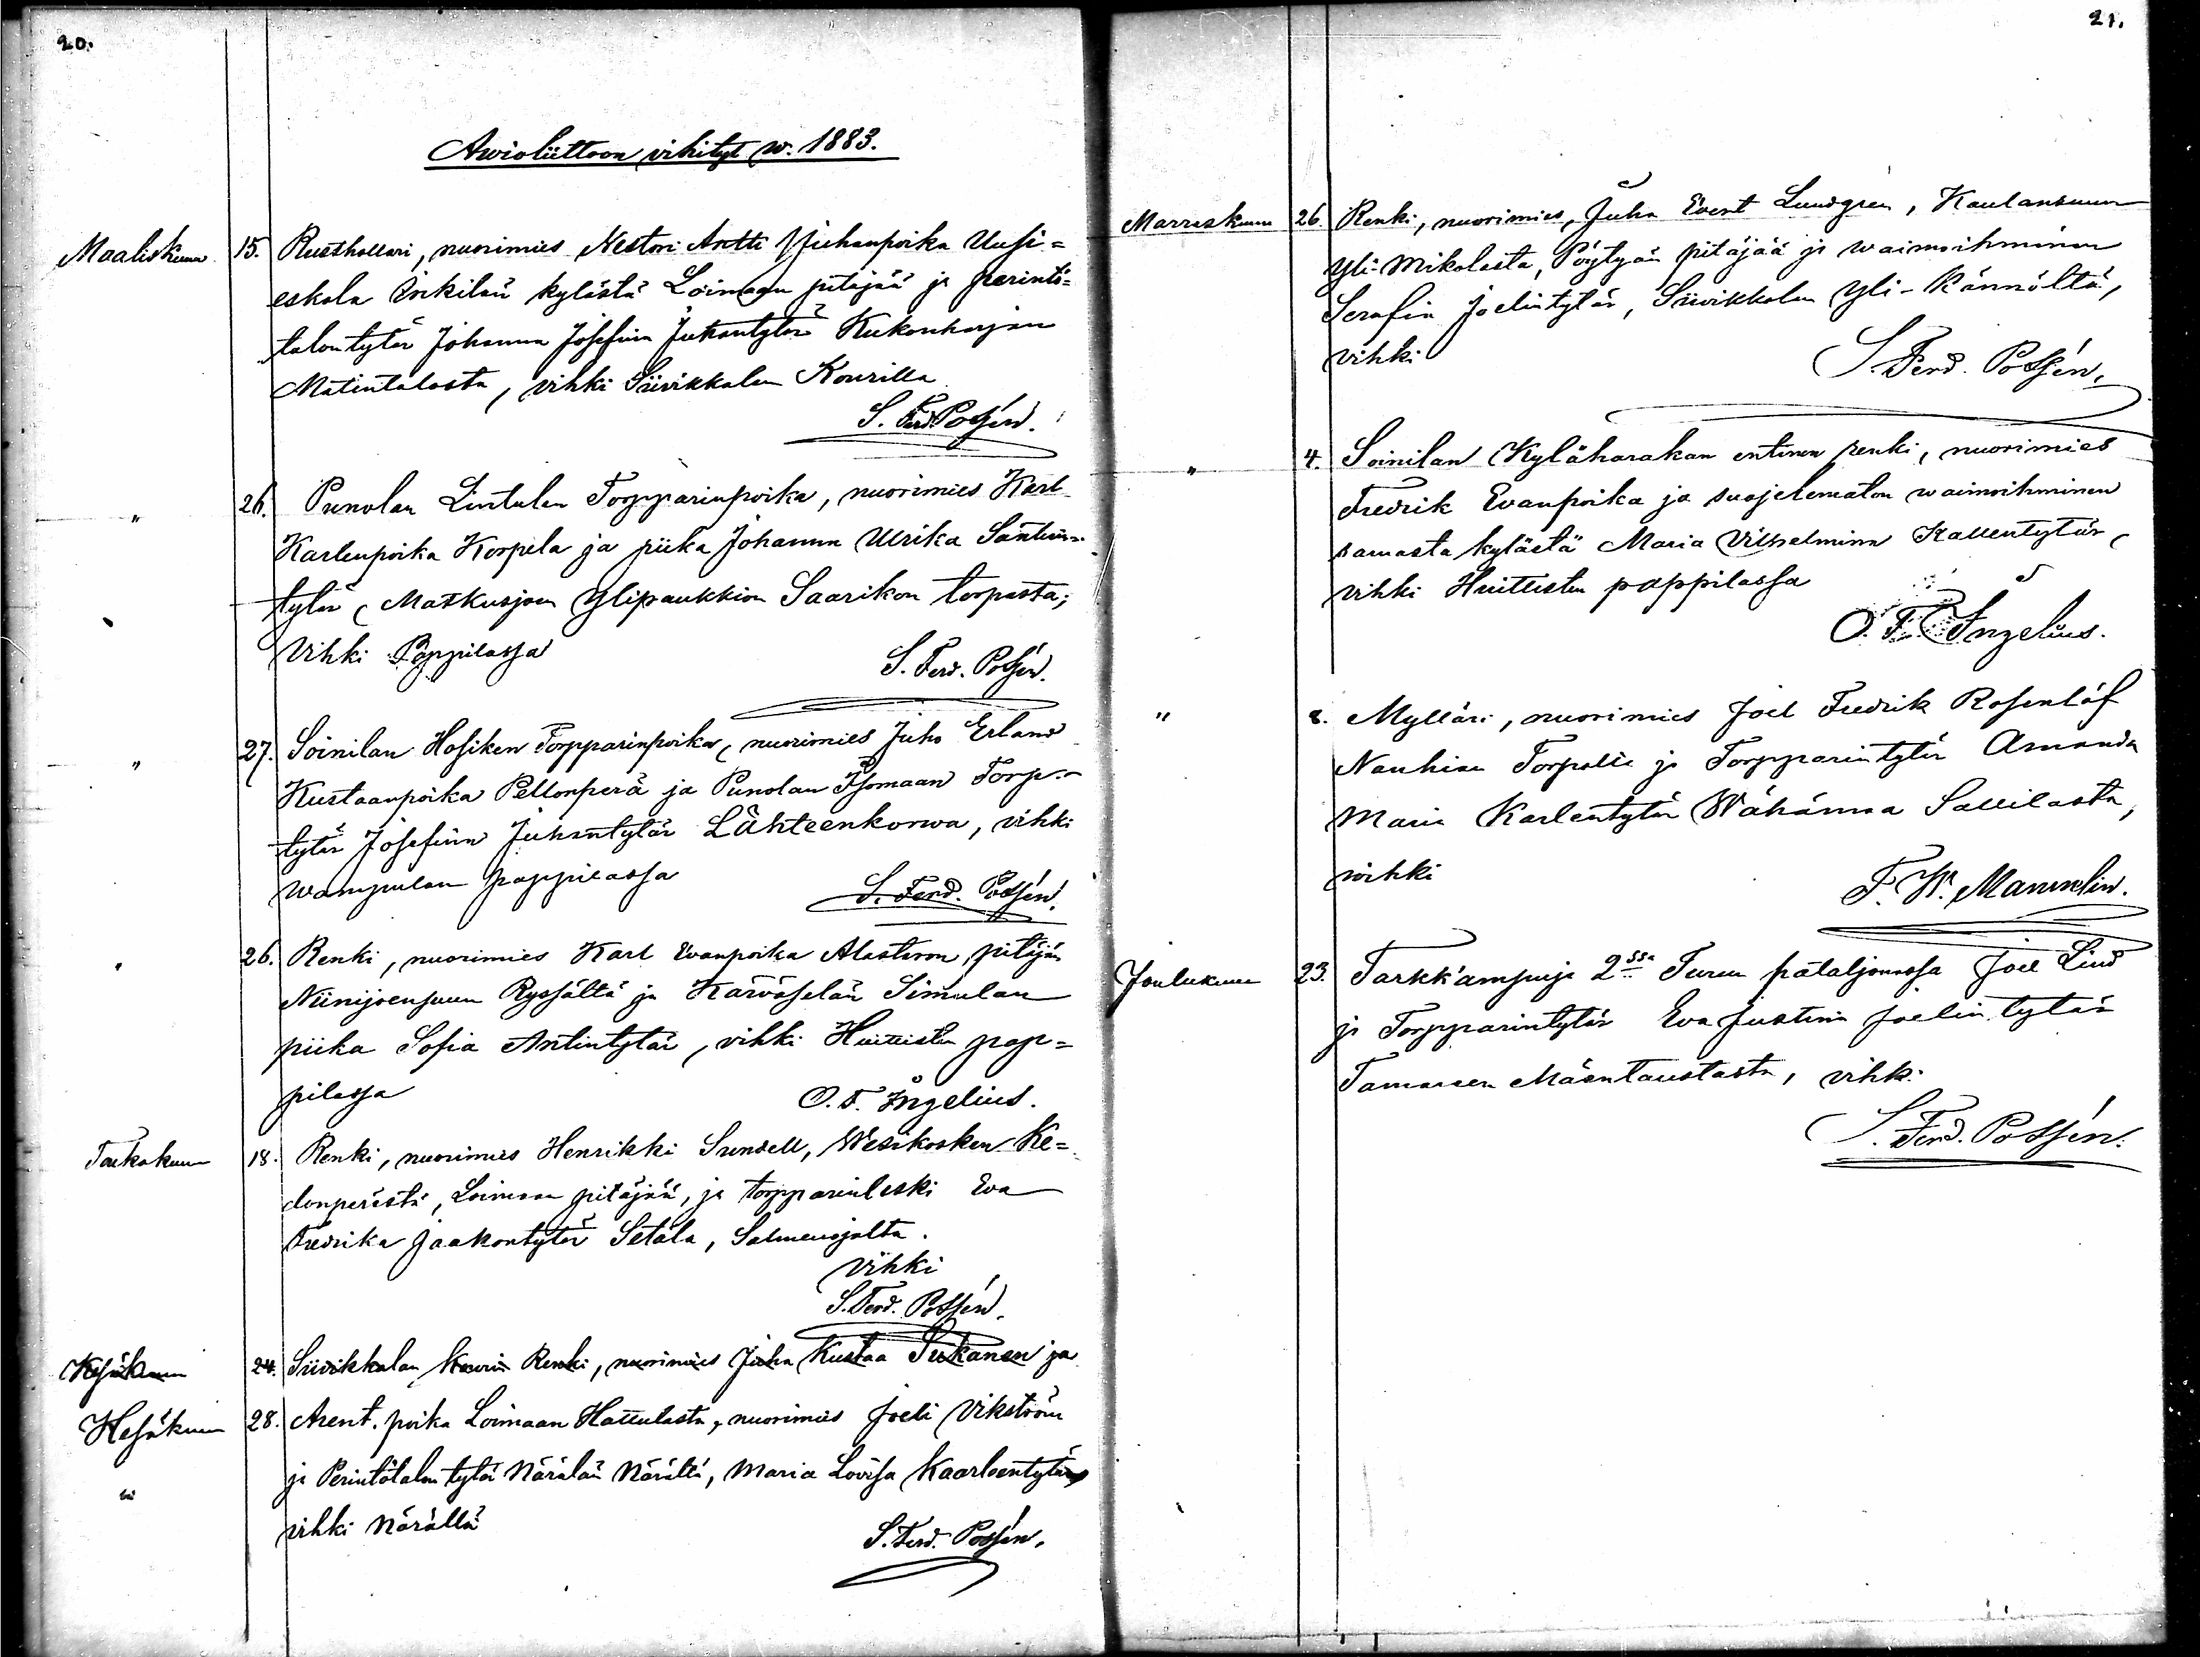 20.
Awioliittoon vihityt w. 1883.
Maaliskuun 15. Rusthollari, nuorimies Nestori Antti Juhanpoika Uusi=
eskola kylästä Loimaan pitäjää ja perintö=
talontytär Johanna Josefiina Juhantytär Kukonharjan
Matintalosta, vihki Siivikkalan Kourilla
S. Ferd. Possén.
" 26. Punolan Lintulan Torpparinpoika, nuorimies Karl
Karlenpoika Korpela ja piika Johanna Ulrika Santun=
tytär, Matkusjoen Ylipaukkion Saarikon torpasta;
Vihki Pappilassa
S. Ferd. Possén.
" 27. Soinilan Hosiken Torpparinpoika, nuorimies Juho Erland
Kustaanpoika Pellonperä ja Punolan Isomaan Torp.=
tytär Josefiina Juhantytär Lähteenkorwa, vihki
Wampulan pappilassa
S. Ferd. Possén.
" 26. Renki, nuorimies Karl Evanpoika Alastaron pitäjän
Niinijoensuun Ryssältä ja Karwaselän Simulan
piika Sofia Antintytär, vihki Huittisten pap=
pilassa
O. F. Ingelius.
Toukokuun 18. Renki, nuorimies Henrikki Sundell, Wesikosken Ke=
donperästä, Loimaan pitäjää, ja torpparinleski Eva
Fredrika Jaakontytär Setälä, Salmenojalta.
Vihki
S. Ferd. Possén.
Kesäkuun 24. Siivikkalan Kourin Renki, nuorimies Juha Kustaa Tukanen ja
Hesäkuun 28. Arent. poika Loimaan Hattulasta, nuorimies Joeli Vikström
" ja Perintötalon tytär Närälän Närältä, Maria Lovisa Kaarlentytär
vihki Närällä
S. Ferd. Possén.
21.
Marraskuun 26. Renki, nuorimies, Juha Evert Lundgren, Kaulansuun
Yli-Mikolasta, Pöytyän pitäjää ja waimoihminen
Serafia Joelintytär, Siivikkalan Yli-Kännöltä,
vihki
S. Ferd. Possén.
" 4. Soinilan Kyläharakan entinen renki, nuorimies
Fredrik Evanpoika ja suojelematon waimoihminen
samasta kylästä Maria Vilhelmina Kallentytär,
vihki Huittisten pappilassa
O. F. Ingelius.
" 2. Mylläri, nuorimies Joel Fredrik Rosenlöf
Nanhian Torpalla ja Torpparintytär Amanda
Maria Karlentytär Wähämaa Sallilasta,
wihki
F. W. Mannelin.
Joulukuun 23. Tarkk'ampuja 2ssa Turun pataljonassa Joel Lind
ja Torpparintytär Eva Justina Joelin tytär
Tamaren Mäentaustasta, vihki
S. Ferd. Possén.